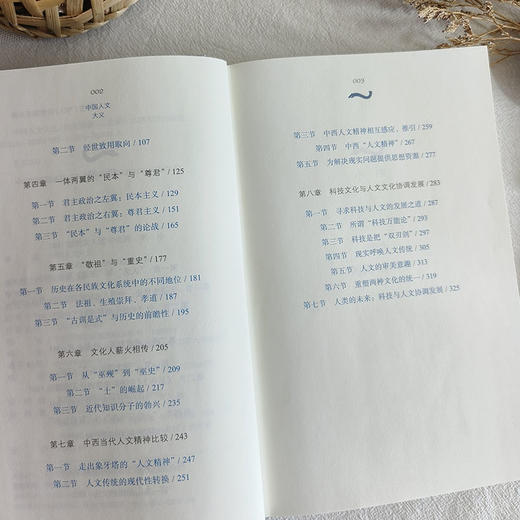 002
中国人文
大义
第二节 经世致用取向 / 107
第四章 一体两翼的“民本”与“尊君” / 125
第一节 君主政治之左翼：民本主义 / 129
第二节 君主政治之右翼：尊君主义 / 151
第三节 “民本”与“尊君”的论战 / 165
第五章 “敬祖”与“重史” / 177
第一节 历史在各民族文化系统中的不同地位 / 181
第二节 法祖、生殖崇拜、孝道 / 187
第三节 “古训是式”与历史的前瞻性 / 195
第六章 文化人薪火相传 / 205
第一节 从“巫觋”到“巫史” / 209
第二节 “士”的崛起 / 217
第三节 近代知识分子的勃兴 / 235
第七章 中西当代人文精神比较 / 243
第一节 走出象牙塔的“人文精神” / 247
第二节 人文传统的现代性转换 / 251
003
第三节 中西人文精神相互感应、推引 / 259
第四节 中西“人文精神” / 267
第五节 为解决现实问题提供思想资源 / 277
第八章 科技文化与人文文化协调发展 / 283
第一节 寻求科技与人文的发展之道 / 287
第二节 所谓“科技万能论” / 291
第三节 科技是把“双刃剑” / 297
第四节 现实呼唤人文传统 / 305
第五节 人文的审美意趣 / 313
第六节 重缔两种文化的统一 / 319
第七节 人类的未来：科技与人文协调发展 / 325